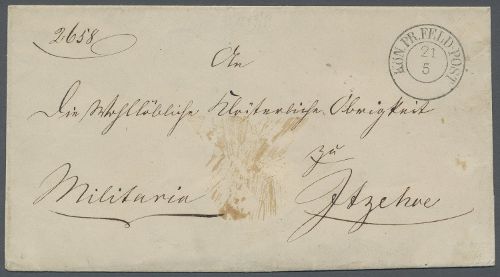 2658
KÖN. PR. FELD-POST
21
5
An
Die Wohllöbliche Klösterliche Obrigkeit
zu
Militaria Itzehoe